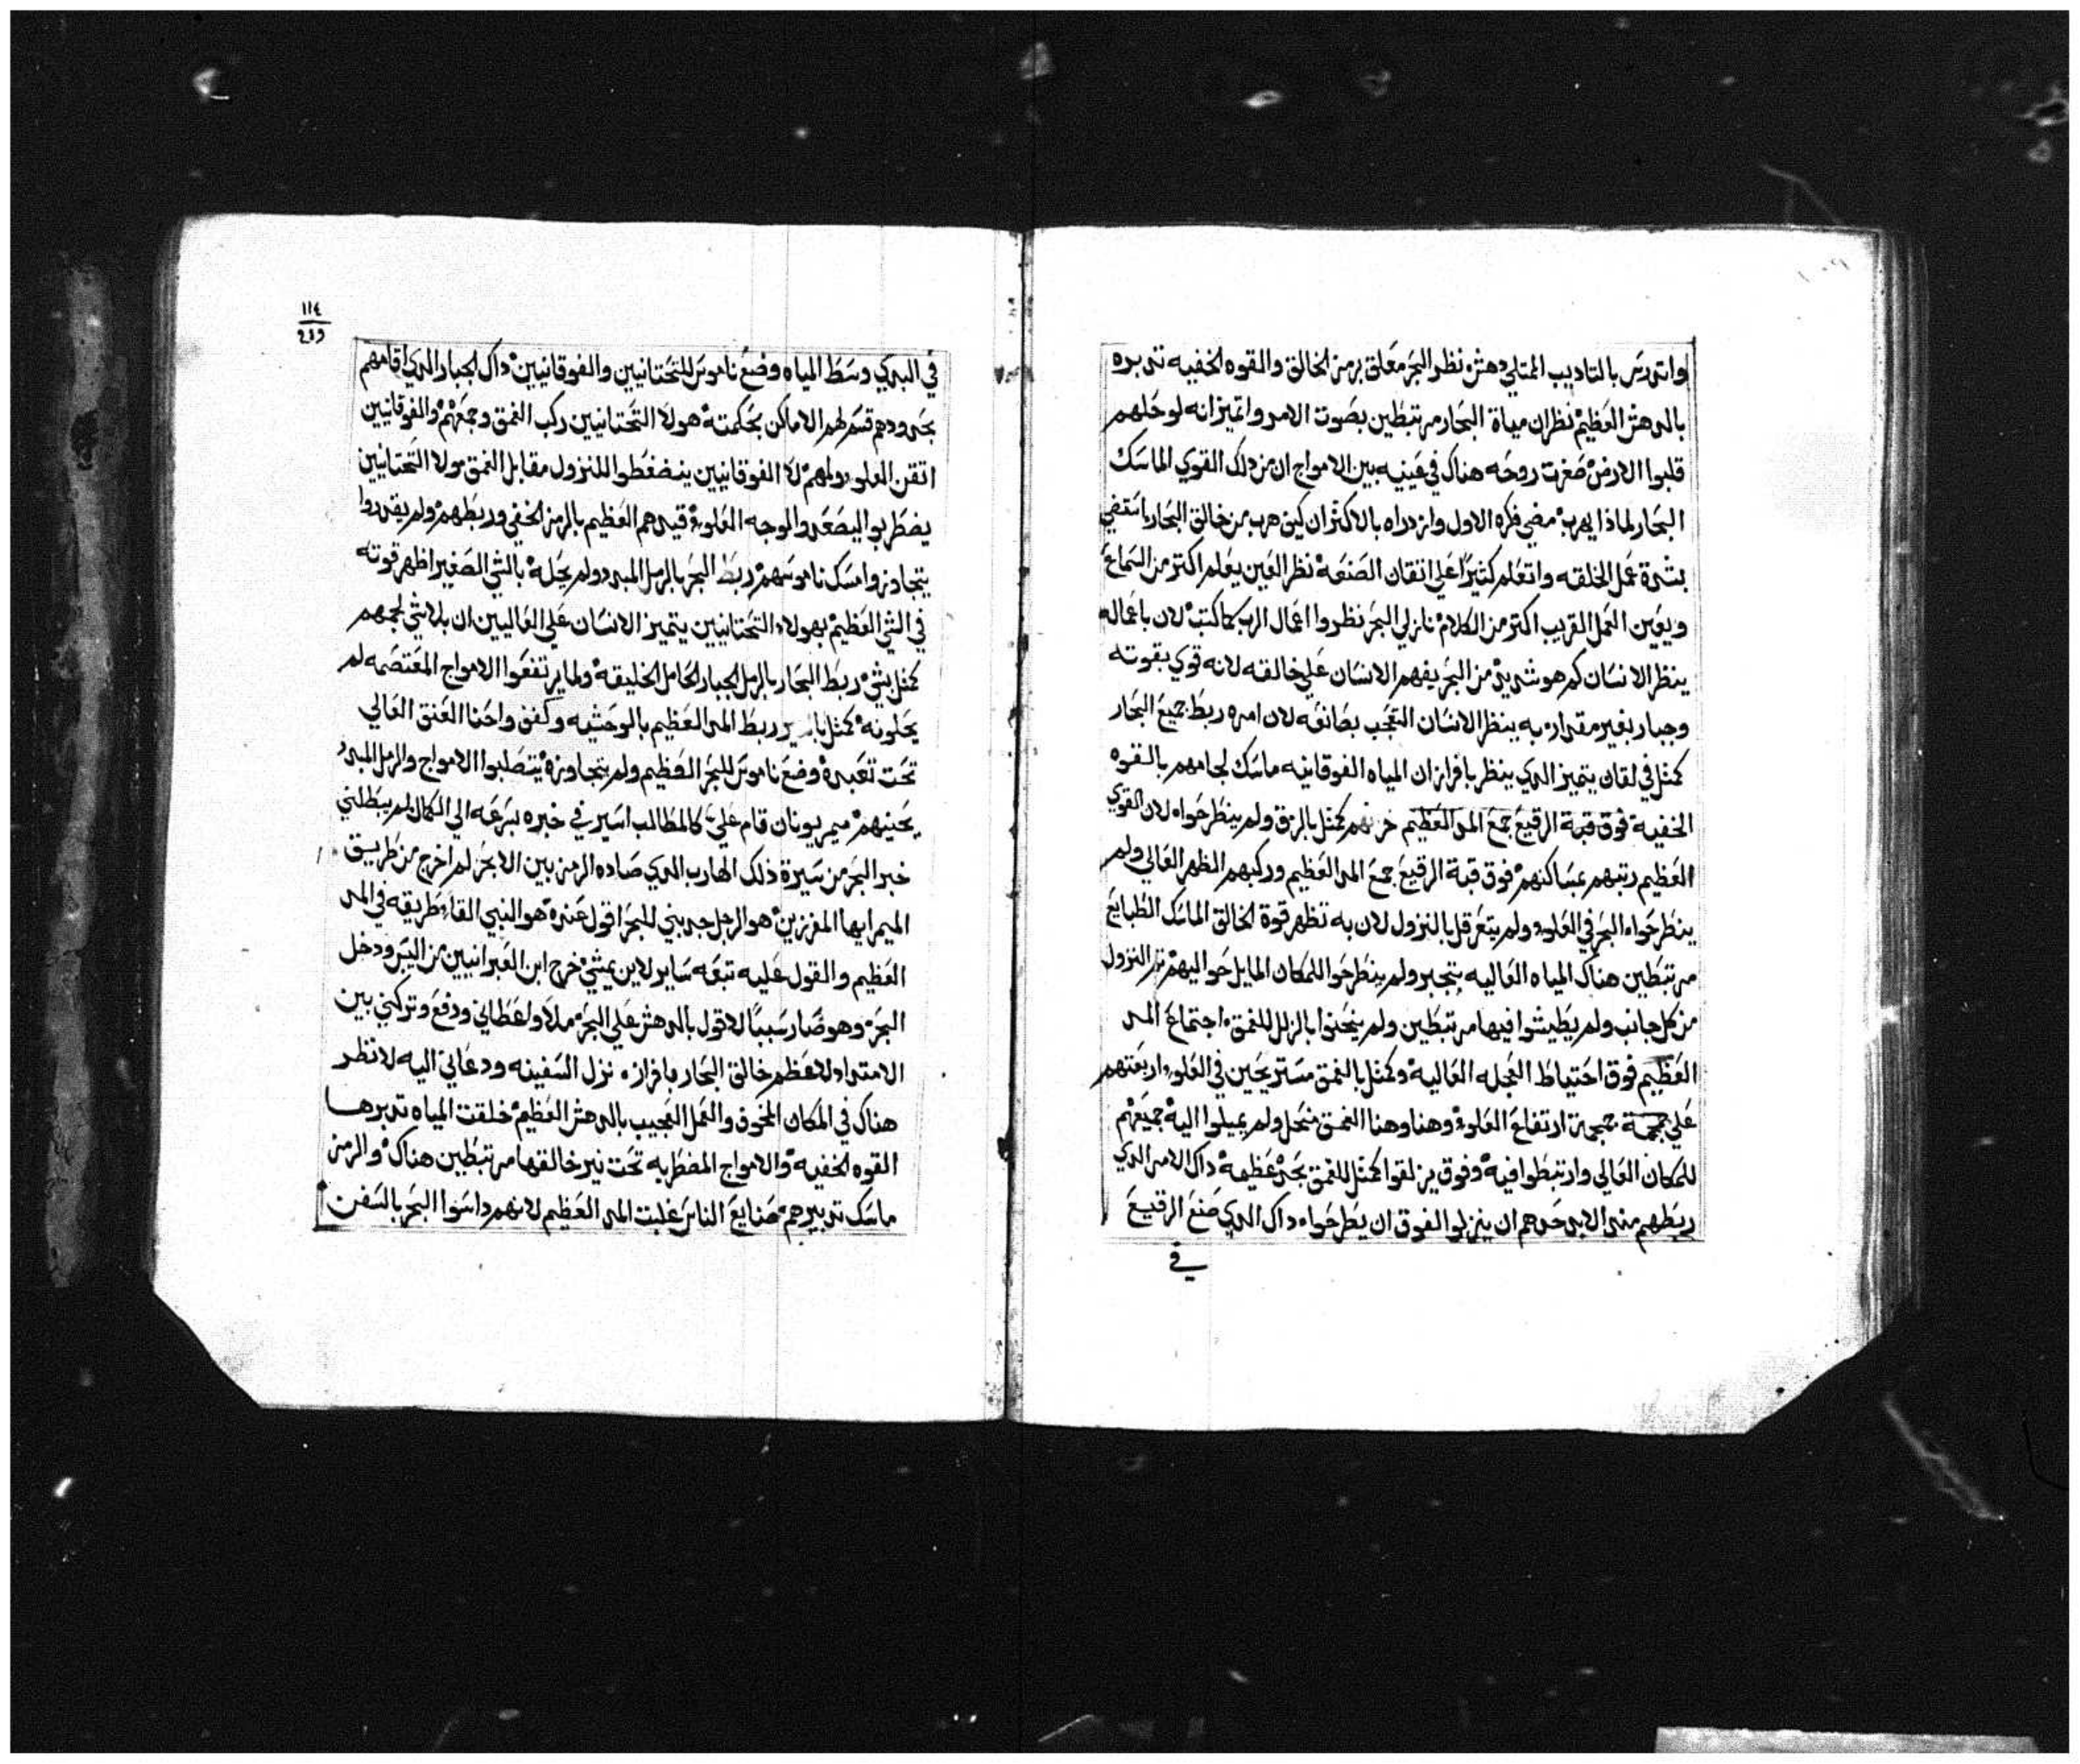 واتدرس بالتاديب الممتلي دهش، نظر البحر معلق برمز الخالق والقوه الخفيه تدبره
بالدهش العظيم، نظر ان مياة البحار مرتبطين بصوت الامر واتميز انه لو حلهم
قلبوا الارض، صغرت روحه هناك في عينيه بين الامواج ان من ذلك القوي الماسك
البحار لماذا يهرب، مضي فكره الاول وازدراه بالاكثر ان كيف هرب من خالق البحار،
بشدة عمل الخلقه واتعلم كثيرًا علي اتقان الصنعه، نظر العين يعلم اكتر من السماع
ويعين العمل القريب اكتر من الكلام، نازلي البحر نظروا اعمال الرب كما كتب، لان باعماله
ينظر الانسان كم هو شديد، من البحر يفهم الانسان علي خالقه لانه قوي بقوته
وجبار بغير مقدار، به ينظر الانسان التعجب بصانعه لان امره ربط جميع البحار
كمثل في لقان، يتميز الدي ينظر بافراز ان المياه الفوقانيه ماسك لجامهم بالقوه
الخفيه، فوق قبة الرقيع جمع المد العظيم كمثل بالزق ولم ينطرحوا، لان القوي
العظيم رتبهم بمساكنهم، فوق قبة الرقيع جمع المد العظيم وركبهم الظهر العالي ولم
ينطرحوا، البحر في العلو، ولم يتعرقل بالنزول لان به تظهر قوة الخالق الماسك الطبايع
مرتبطين هناك المياه العاليه بتجبر ولم ينطرحوا للمكان المايل حواليهم، النزول
من كل جانب ولم يطيشوا فيها مرتبطين ولم ينحنوا بالزلل للغمق، اجتماع المد
العظيم فوق احتياط العجله العاليه، وكمثل بالغمق مستريحين في العلو، اربعتهم
علي جمجمة ارتفاع العلو، وهنا وهنا الغمق منحل ولم يميلوا اليه، جميعهم
للمكان العالي وارتبطوا فيه، وفوق يزلقوا كمثل للغمق بحد، عظيمه، داك الامر الدي
ربطهم مند الابد حدهم ان ينزلوا الفوق ان يطرحوا، داك الدي صنع الرقيع
في
١١٤
في البدي وسط المياه وضع ناموس للتحتانيين والفوقانيين، داك الجبار الدي اقامهم
بحدودهم قسم لهم الاماكن بحكمته، هولا، التحتانيين ركب الغمق وجمعهم، والفوقانيين
اتقن العلو، ولهم، لا الفوقانيين ينضغطوا للنزول مقابل الغمق، ولا التحتانيين
يضطربوا ليصعدوا لوجه العلو، قيدهم العظيم بالرمز الخفي وربطهم، ولم يقدروا
يتجاوزوا مسك ناموسهم، ربط البحر بالرمل المبدد ولم يحله، بالشي الصغير اظهر قوته
في الشي العظيم، بهولا، التحتانيين يتميز الانسان علي العاليين ان بلا شي لجمهم
كمثل بشي، ربط البحار بالرمل الجبار الحامل الخليقه، ولما يرتفعوا الامواج المعتصمه لم
يحلونه، كمثل ربط المد العظيم بالوحشيه وكفف واحنا العنق العالي
تحت تعبده، وضع ناموس للبحر العظيم ولم يتجاوزه، يتصلبوا الامواج والرمل المبدد
يحنيهم، ميمر يونان قام علي، كالمطالب اسير في خبره بسرعه الي الكمال، لم يبطلني
خبر البحر من سيرة ذلك الهارب الدي صاده الرمز بين الابحر، لم اخرج من طريق
الميمر ايها المفرزين، هو الرجل جدبني للبحر، اقول عنده، هو النبي القا، طريقه في المد
العظيم والقول عليه تبعه ساير لاين يمشي، خرج ابن العبرانيين من اليبر ودخل
البحر، وهو صار سببًا لاقول بالدهش علي البحر، ملا، ولغطاني ودفع وتركني بين
الامتداد لاعظم خالق البحار بافراز، نزل السفينه ودعاني اليه لانظر
هناك في المكان المخوف والعمل العجيب بالدهش العظيم، خلقت المياه تدبرها
القوه الخفيه، والامواج المضطربه تحت نير خالقها مرتبطين هناك، والرمز
ماسك تدبيرهم، صنايع الناس غلبت المد العظيم لانهم داسوا البحر بالسفن